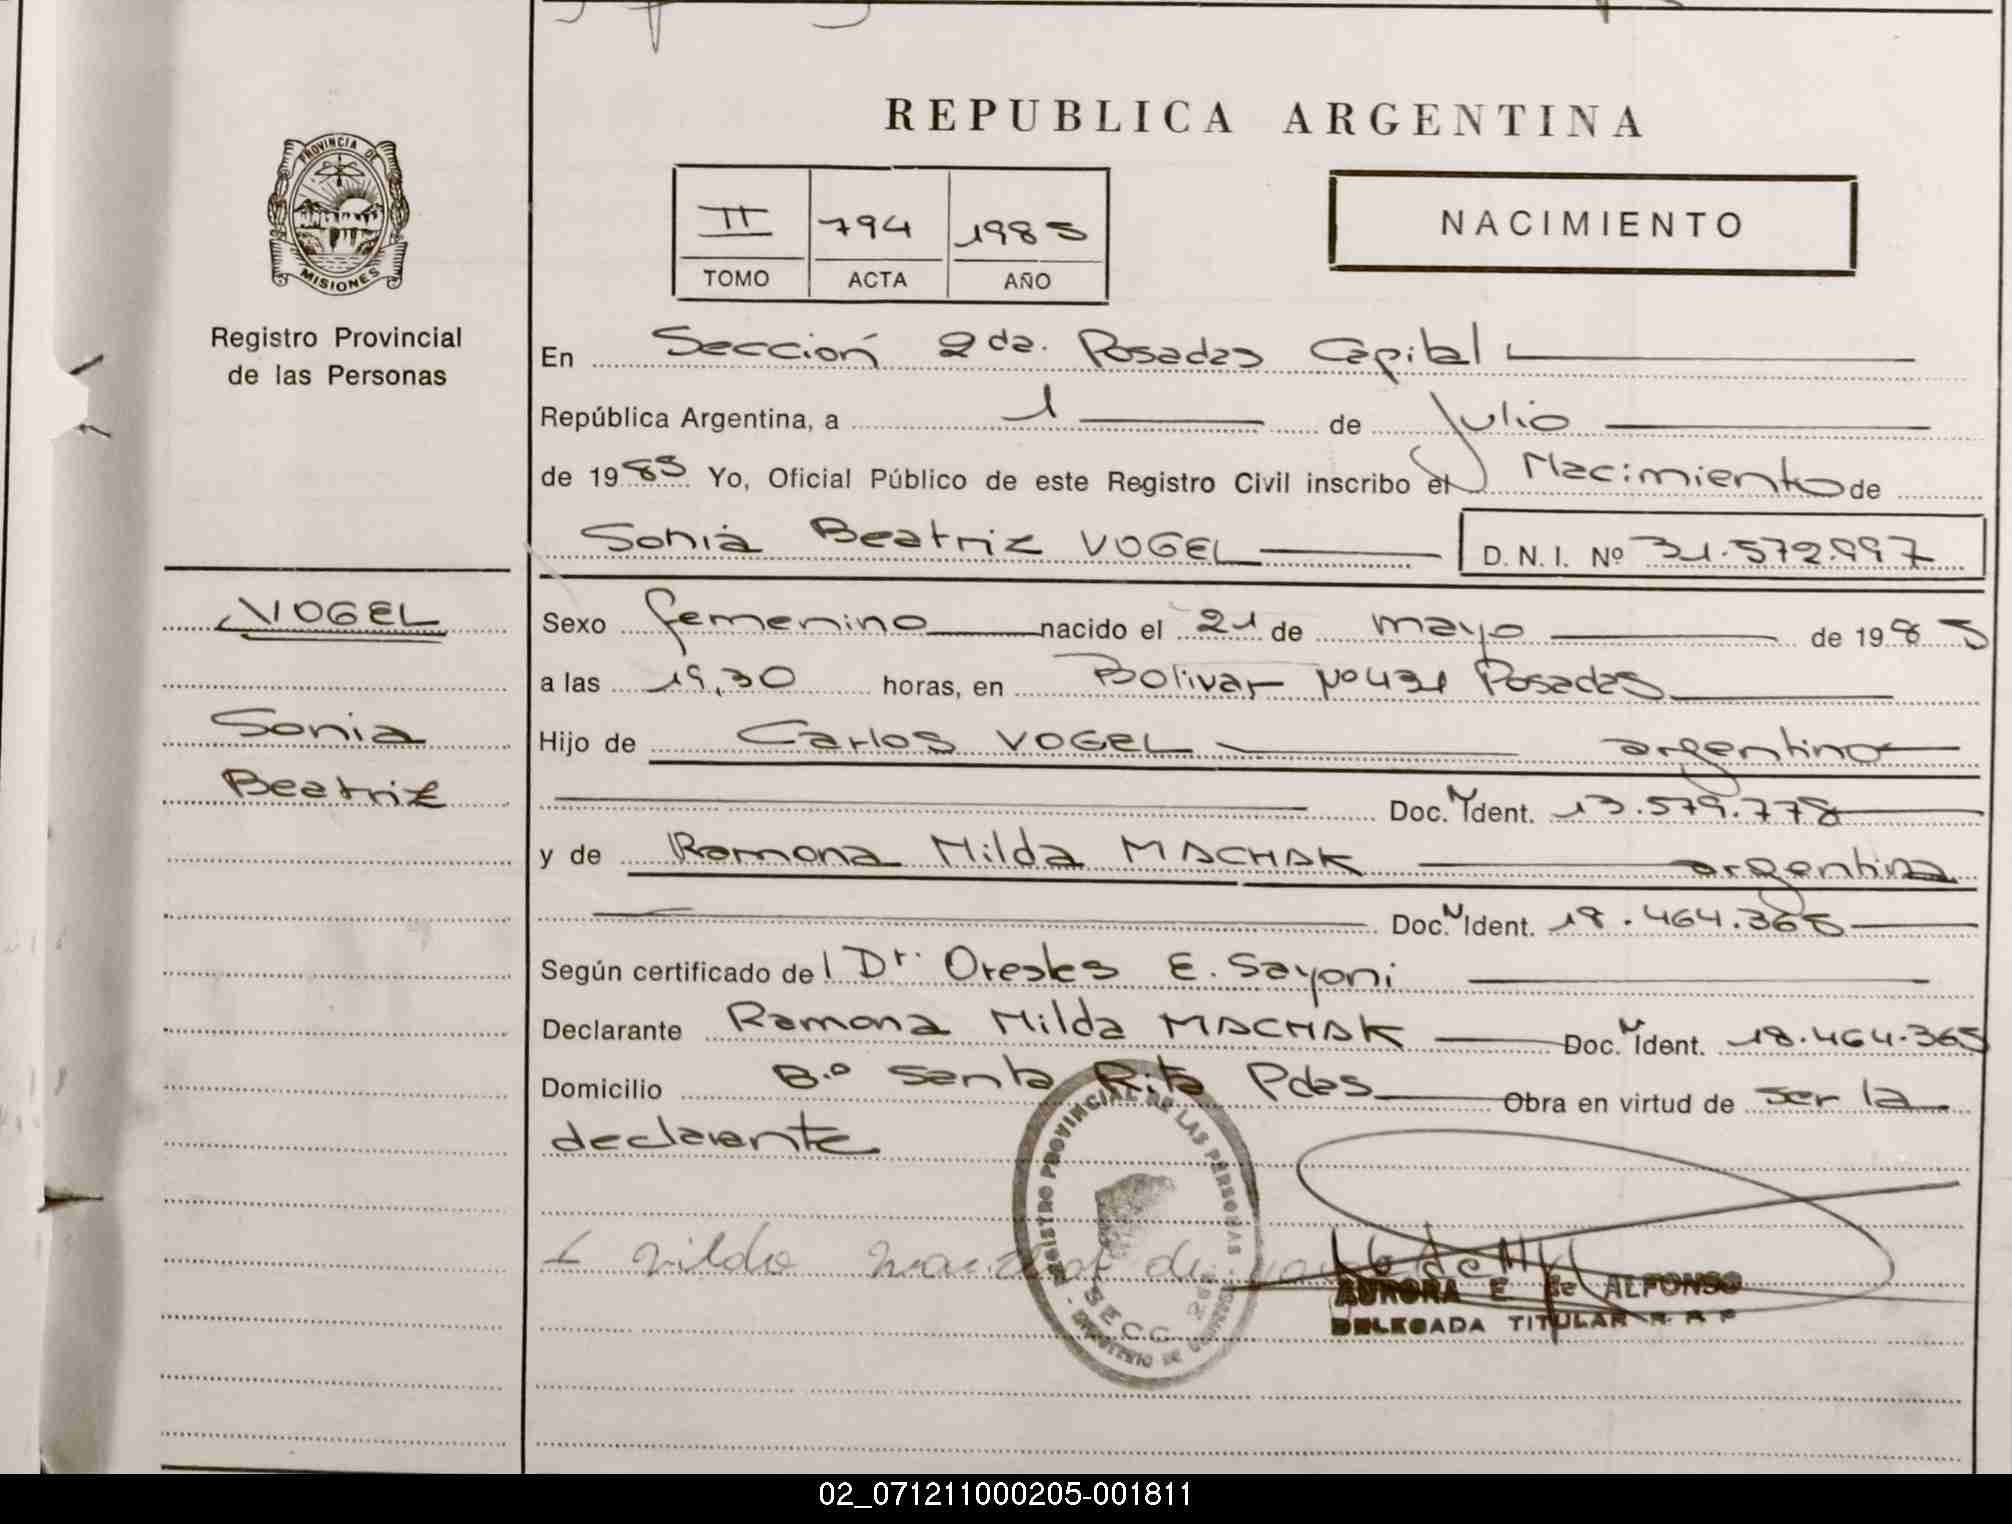 REPUBLICA ARGENTINA
PROVINCIA DE
MISIONES
Registro Provincial
de las Personas
II 794 1985
TOMO ACTA AÑO
NACIMIENTO
En Sección 2da. Posadas Capital
República Argentina, a 1 de Julio
de 1985 Yo, Oficial Público de este Registro Civil inscribo el Nacimiento de
Sonia Beatriz VOGEL D. N. I. Nº 31.572.997
VOGEL
Sonia
Beatriz
Sexo femenino nacido el 21 de mayo de 1985
a las 19,30 horas, en Bolivar Nº 431 Posadas
Hijo de Carlos VOGEL argentino
Doc. N Ident. 13.579.778
y de Ramona Nilda MACHAK argentina
Doc. N Ident. 18.464.365
Según certificado de l Dr. Orestes E. Sayoni
Declarante Ramona Nilda MACHAK Doc. N Ident. 18.464.365
Domicilio B.º Santa Rita Pdas Obra en virtud de ser la
declarante
REGISTRO PROVINCIAL DE LAS PERSONAS
SECC. 2da
nilda de
AURORA E. de ALFONSO
DELEGADA TITULAR R. R. P
02_071211000205-001811